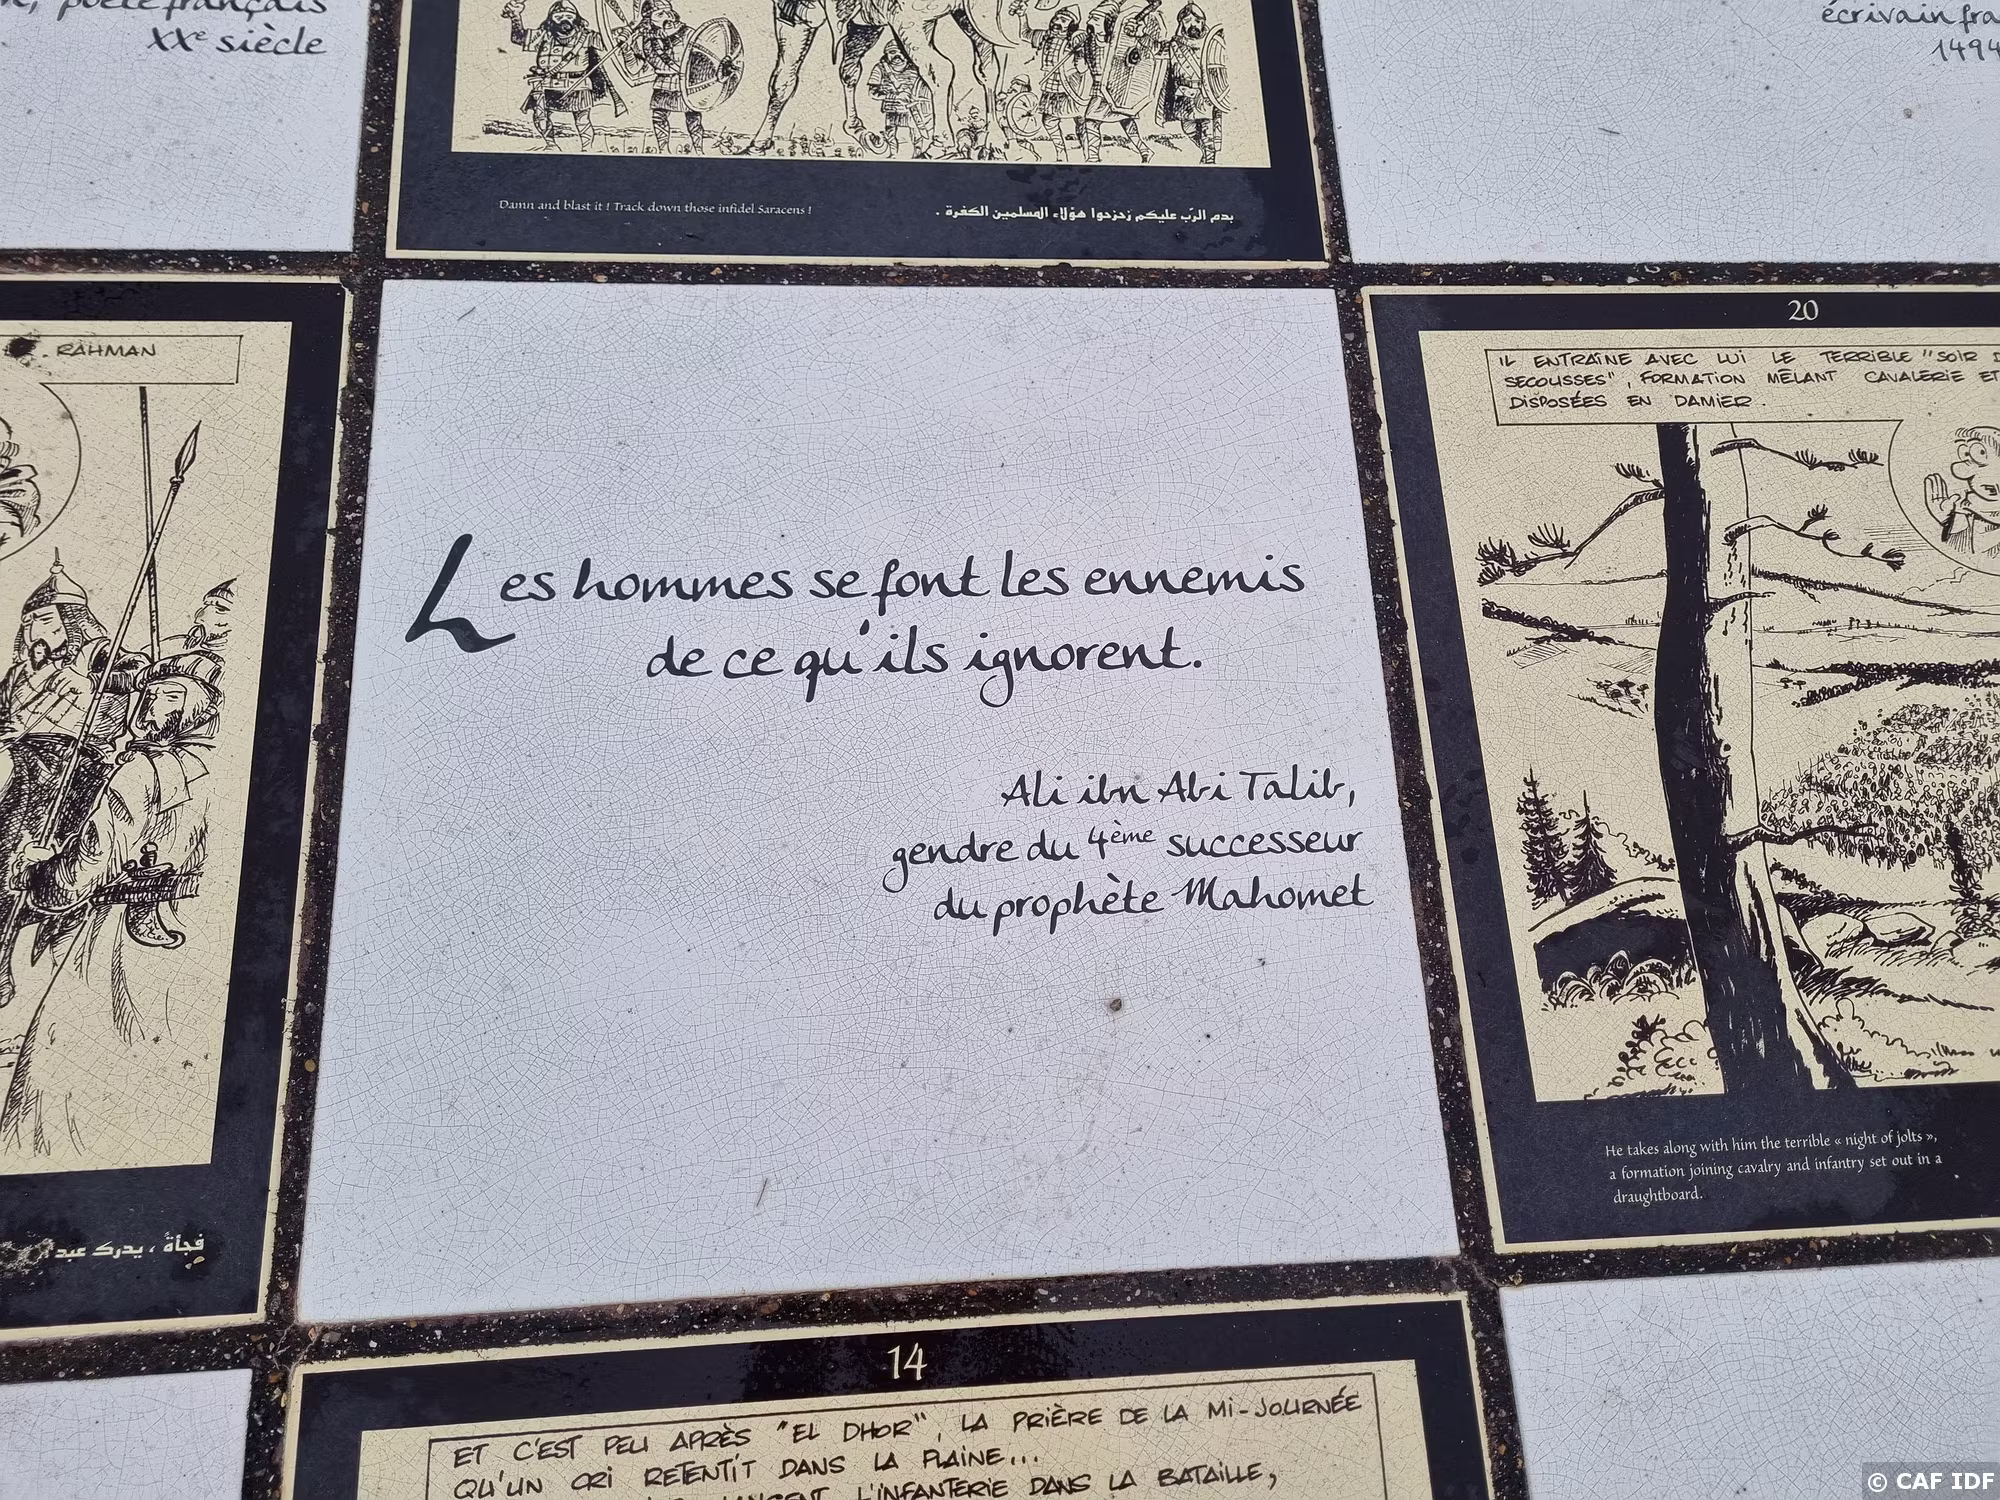 poète français
XXe siècle
écrivain
1494
Damn and blast it ! Track down those infidel Saracens !
بدم الرّب عليكم زحزحوا هؤلاء المسلمين الكفرة .
RAHMAN
Les hommes se font les ennemis
de ce qu'ils ignorent.
Ali ibn Abi Talib,
gendre du 4ème successeur
du prophète Mahomet
20
IL ENTRAÎNE AVEC LUI LE TERRIBLE "SOIR
SECOUSSES", FORMATION MÊLANT CAVALERIE ET
DISPOSÉES EN DAMIER.
He takes along with him the terrible « night of jolts »,
a formation joining cavalry and infantry set out in a
draughtboard.
فجأة ، يدرك عبد
14
ET C'EST PEU APRÈS "EL DHOR", LA PRIÈRE DE LA MI-JOURNÉE
QU'UN CRI RETENTIT DANS LA PLAINE...
L'INFANTERIE DANS LA BATAILLE,
© CAF IDF